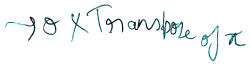 → σ X Transpose of x